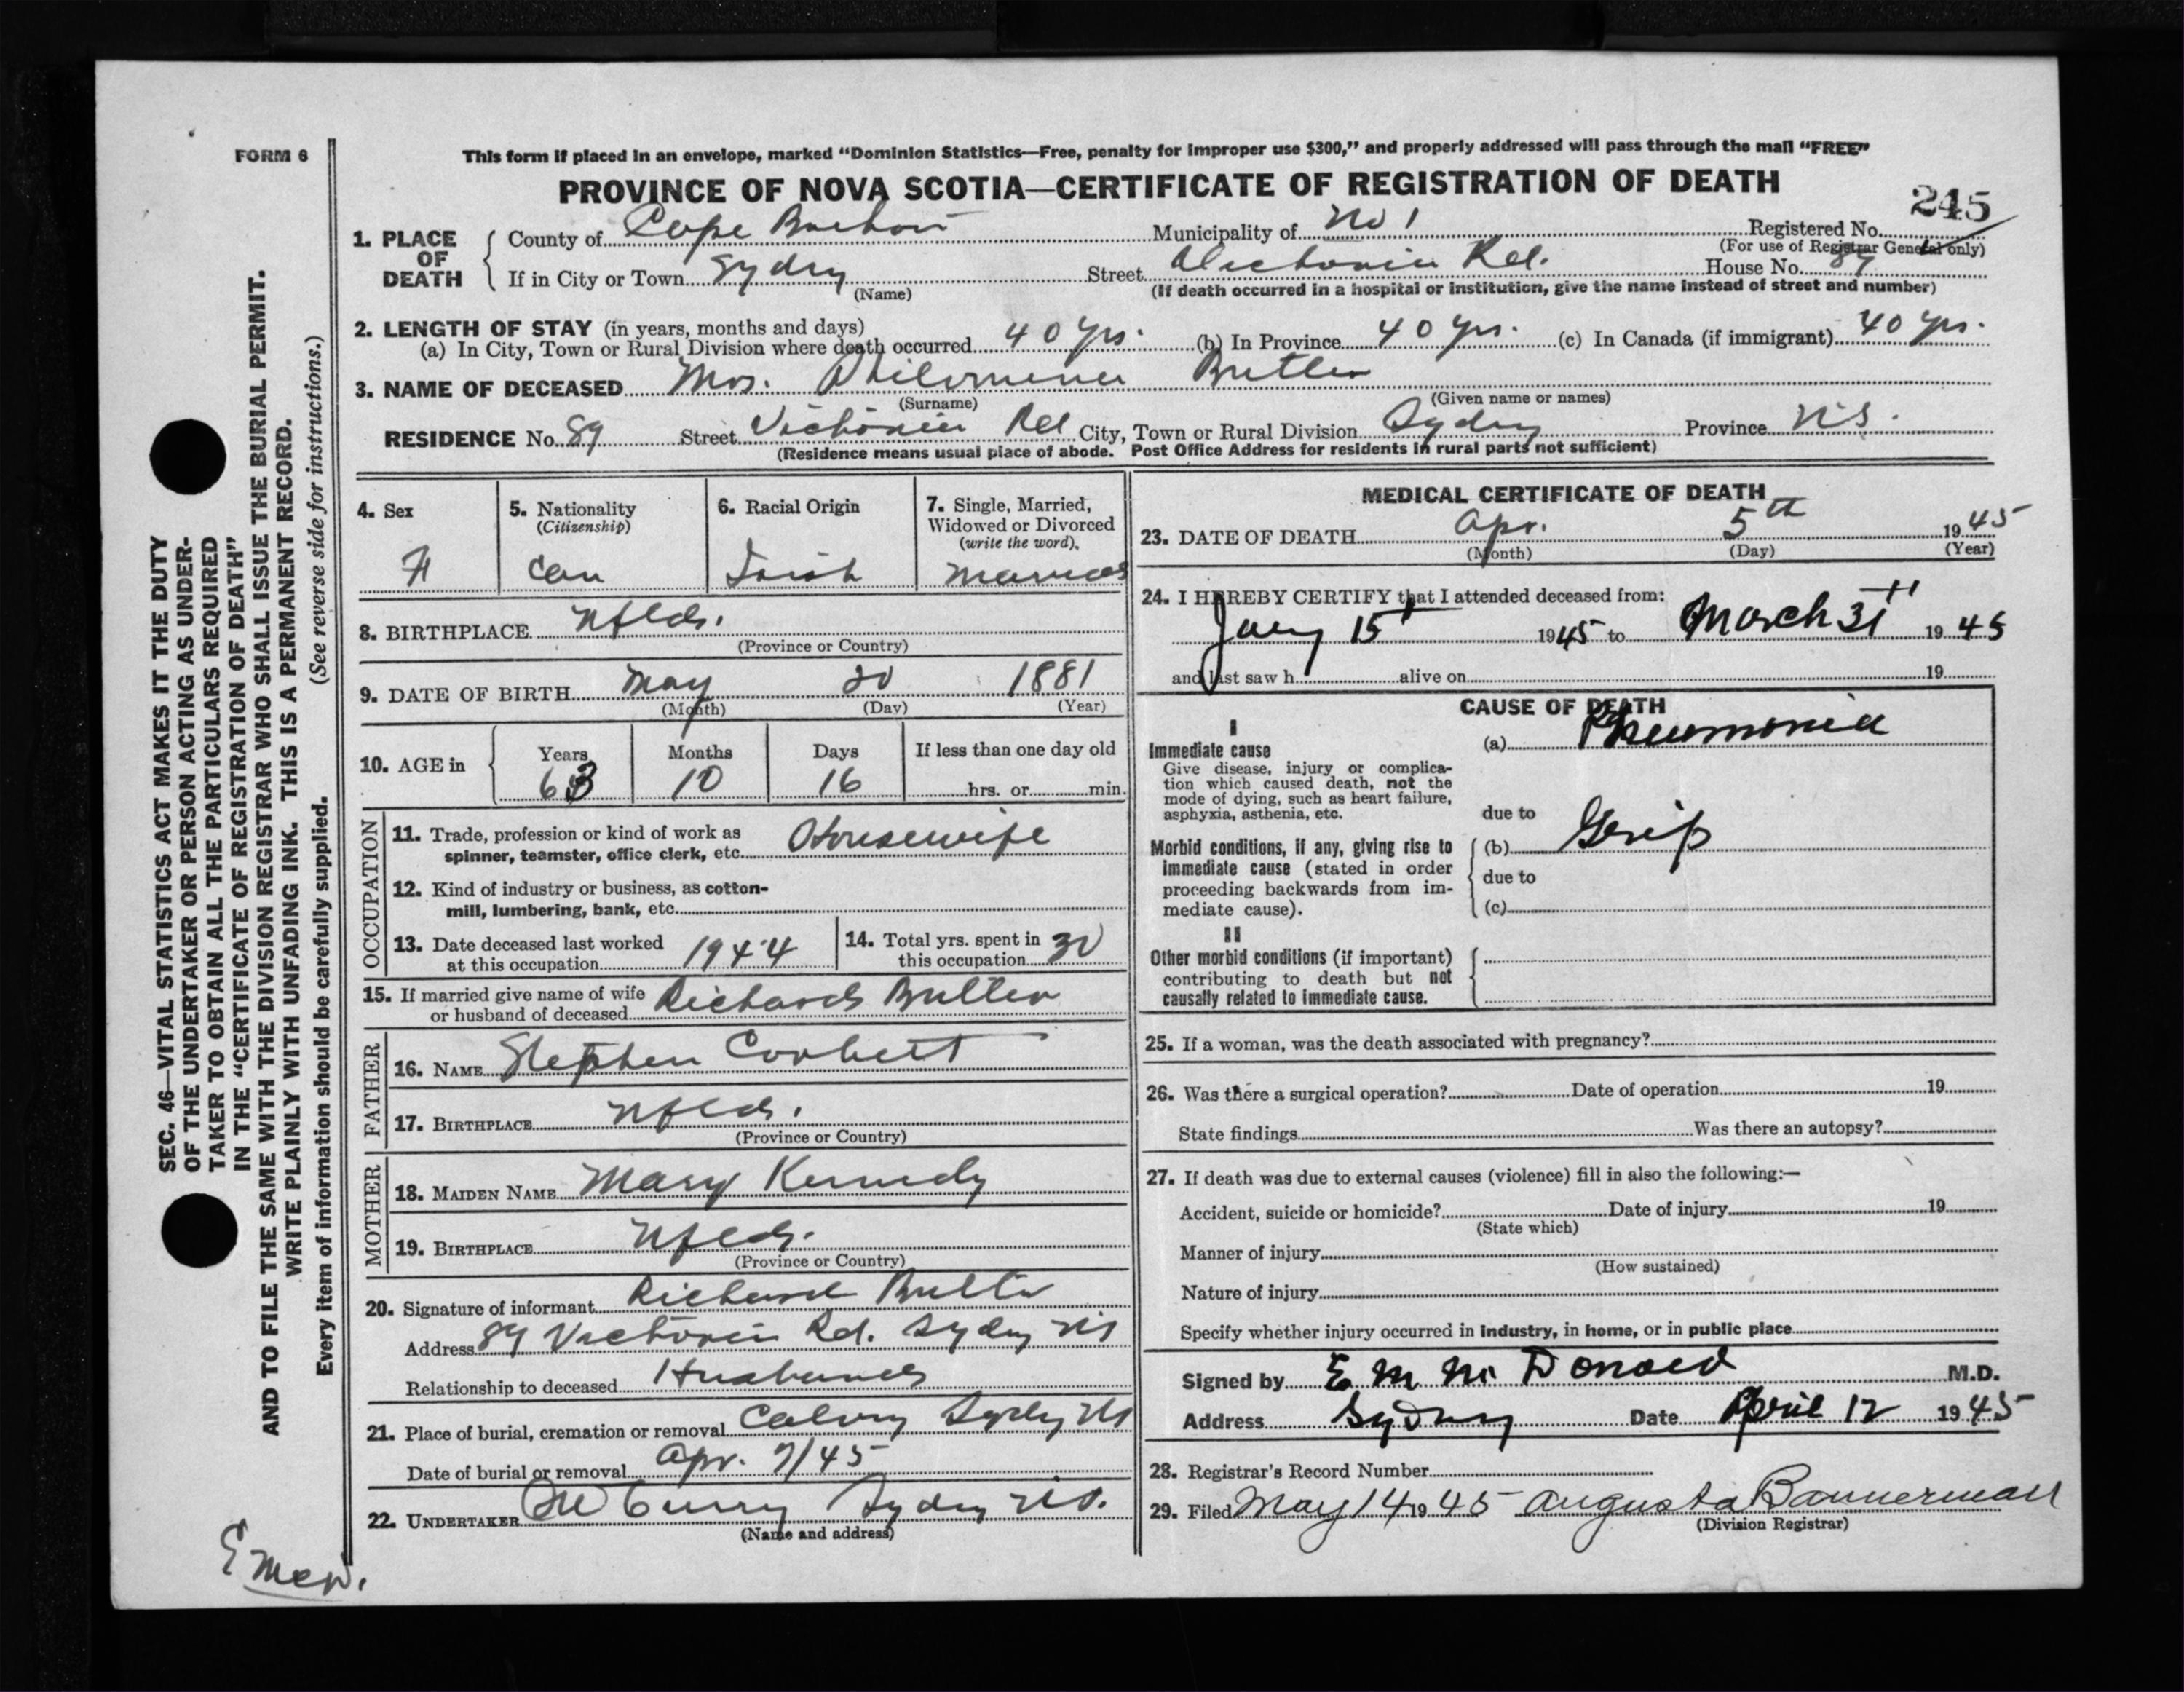 FORM 6
This form if placed in an envelope, marked "Dominion Statistics—Free, penalty for improper use $300," and properly addressed will pass through the mail "FREE"
PROVINCE OF NOVA SCOTIA—CERTIFICATE OF REGISTRATION OF DEATH
245
1. PLACE OF DEATH
County of Cape Breton Municipality of No 1 Registered No.
(For use of Registrar General only)
If in City or Town Sydney Street Victoria Rd. House No. 89
(Name) (If death occurred in a hospital or institution, give the name instead of street and number)
2. LENGTH OF STAY (in years, months and days)
(a) In City, Town or Rural Division where death occurred 40 yrs. (b) In Province 40 yrs. (c) In Canada (if immigrant) 40 yrs.
3. NAME OF DECEASED Mrs. Philomena Butler
(Surname) (Given name or names)
RESIDENCE No. 89 Street Victoria Rd City, Town or Rural Division Sydney Province N.S.
(Residence means usual place of abode. Post Office Address for residents in rural parts not sufficient)
4. Sex
F
5. Nationality
(Citizenship)
Can
6. Racial Origin
Irish
7. Single, Married,
Widowed or Divorced
(write the word).
Married
8. BIRTHPLACE Nfld.
(Province or Country)
9. DATE OF BIRTH May 20 1881
(Month) (Day) (Year)
10. AGE in
Years Months Days If less than one day old
63 10 16 hrs. or min.
OCCUPATION
11. Trade, profession or kind of work as
spinner, teamster, office clerk, etc. Housewife
12. Kind of industry or business, as cotton-
mill, lumbering, bank, etc.
13. Date deceased last worked
at this occupation 1944
14. Total yrs. spent in
this occupation 30
15. If married give name of wife
or husband of deceased Richard Butler
FATHER
16. NAME Stephen Corbett
17. BIRTHPLACE Nfld.
(Province or Country)
MOTHER
18. MAIDEN NAME Mary Kennedy
19. BIRTHPLACE Nfld.
(Province or Country)
20. Signature of informant Richard Butler
Address 89 Victoria Rd. Sydney NS
Relationship to deceased Husband
21. Place of burial, cremation or removal Calvry Sydney NS
Date of burial or removal Apr. 7/45
22. UNDERTAKER Curry Sydney N.S.
(Name and address)
MEDICAL CERTIFICATE OF DEATH
23. DATE OF DEATH Apr. 5th 1945
(Month) (Day) (Year)
24. I HEREBY CERTIFY that I attended deceased from:
Jany 15 1945 to March 31 1945
and last saw h alive on 19
CAUSE OF DEATH
I
Immediate cause
Give disease, injury or complica-
tion which caused death, not the
mode of dying, such as heart failure,
asphyxia, asthenia, etc.
(a) Pneumonia
due to
Morbid conditions, if any, giving rise to
immediate cause (stated in order
proceeding backwards from im-
mediate cause).
(b) Grip
due to
(c)
II
Other morbid conditions (if important)
contributing to death but not
causally related to immediate cause.
25. If a woman, was the death associated with pregnancy?
26. Was there a surgical operation? Date of operation 19
State findings Was there an autopsy?
27. If death was due to external causes (violence) fill in also the following:—
Accident, suicide or homicide? Date of injury 19
(State which)
Manner of injury
(How sustained)
Nature of injury
Specify whether injury occurred in industry, in home, or in public place
Signed by E M McDonald M.D.
Address Sydney Date April 12 1945
28. Registrar's Record Number
29. Filed May 14 1945 Augusta Bannerman
(Division Registrar)
SEC. 46—VITAL STATISTICS ACT MAKES IT THE DUTY
OF THE UNDERTAKER OR PERSON ACTING AS UNDER-
TAKER TO OBTAIN ALL THE PARTICULARS REQUIRED
IN THE "CERTIFICATE OF REGISTRATION OF DEATH"
AND TO FILE THE SAME WITH THE DIVISION REGISTRAR WHO SHALL ISSUE THE BURIAL PERMIT.
WRITE PLAINLY WITH UNFADING INK. THIS IS A PERMANENT RECORD.
Every item of information should be carefully supplied. (See reverse side for instructions.)